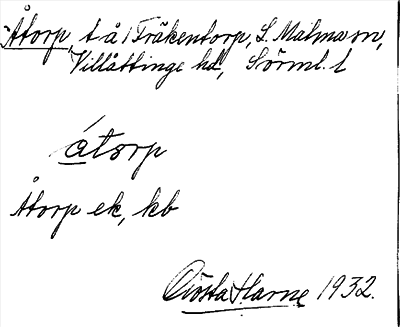 Åtorp, t å 1 Fräkentorp, L. Malma sn,
Villåttinge hd, Sörml. l
átorp
Åtorp ek, kb
Gösta Harne 1932.